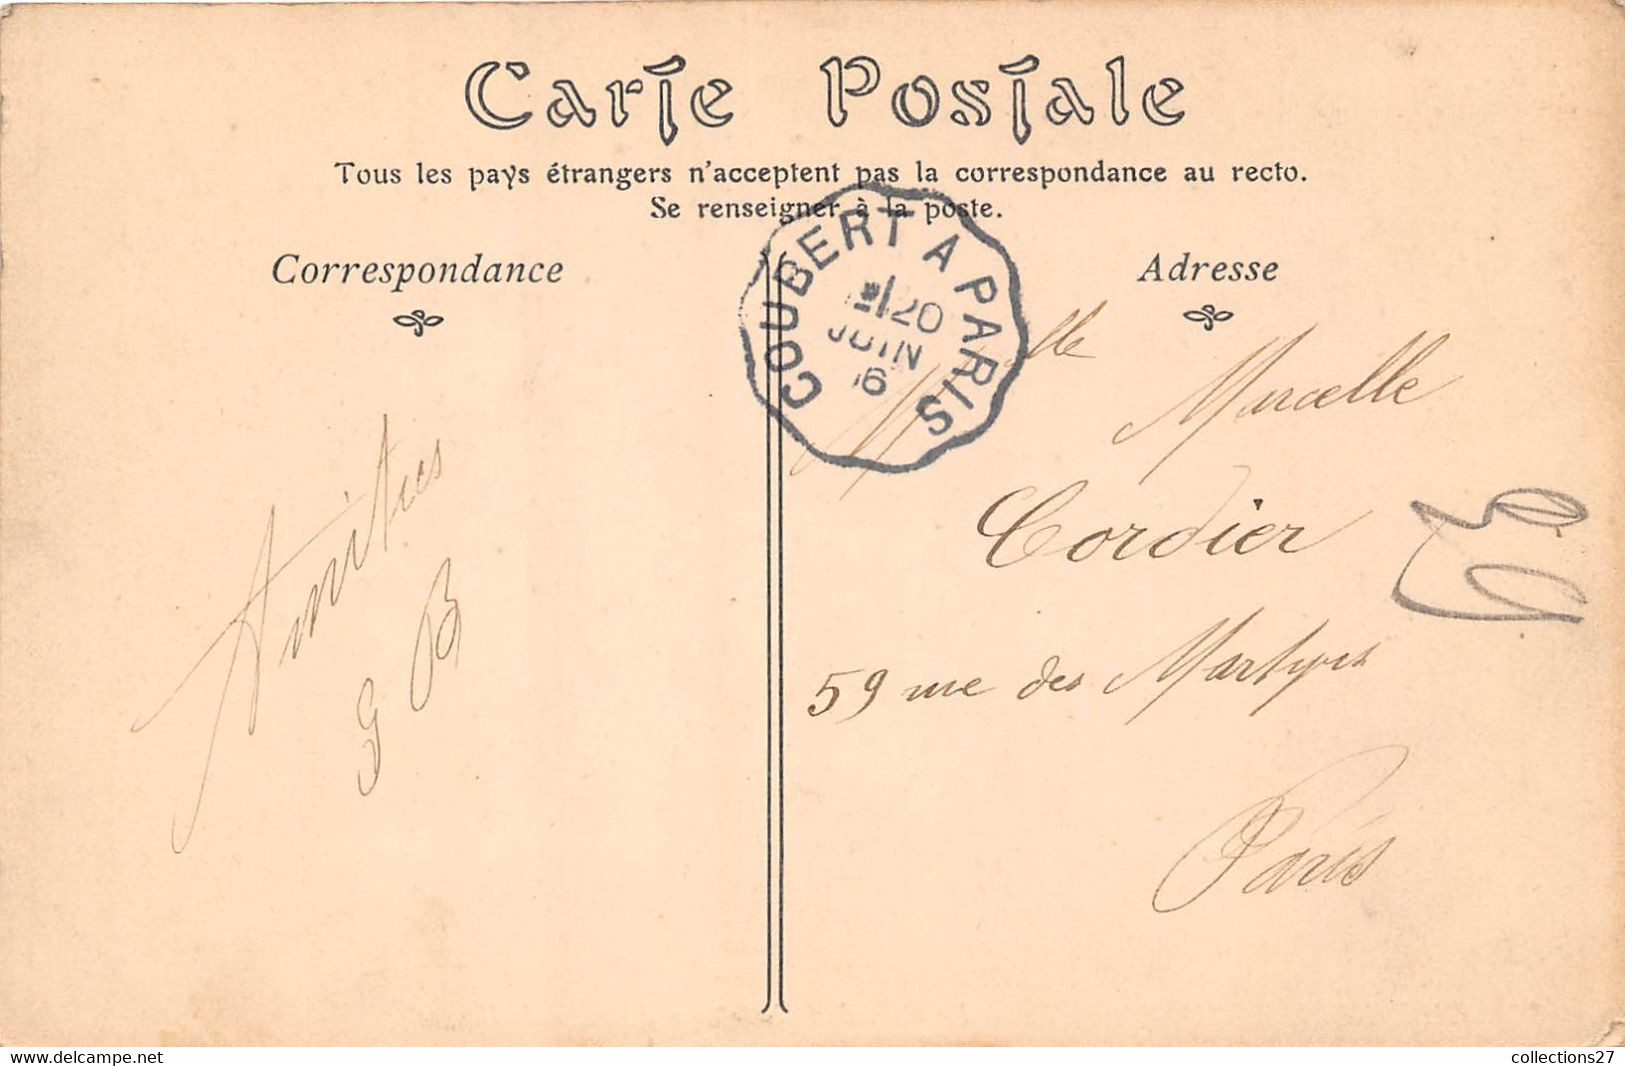 Carte Postale
Tous les pays étrangers n'acceptent pas la correspondance au recto.
Se renseigner à la poste.
Correspondance
Adresse
COUBERT A PARIS
20
JUIN
06
Amitiés
G B
Mlle Marcelle
Cordier
59 rue des Martyrs
Paris
collections27